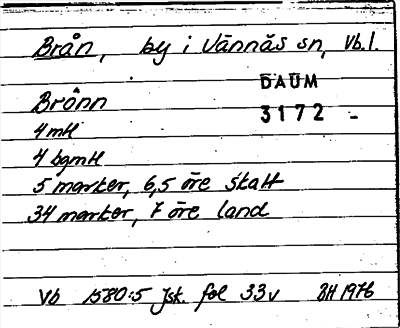 Brån, by i Vännäs sn, Vb.l.
DAUM
3172 -
Brônn
4 mtl
4 bgmtl
5 marker, 6,5 öre skatt
34 marker, 7 öre land
Vb 1580:5 Jsk. fol 33v BH 1976